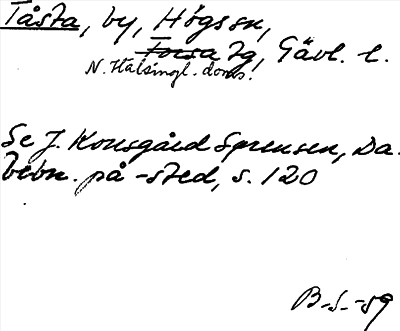 Tåsta, by, Högs sn,
Forsa tg, Gävl. l.
N. Hälsingl. doms.
Se J. Kousgård Sørensen, Da.
bebn. på -sted, s. 120
B-S. -59